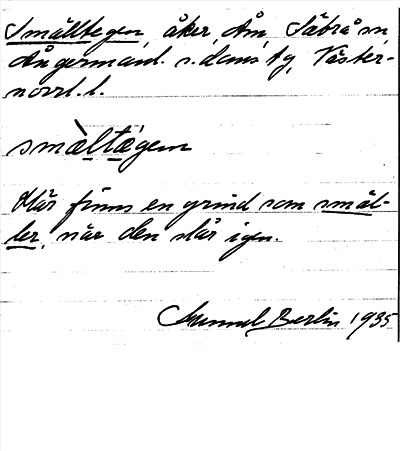 Smälltegen, åker, Ån, Säbrå sn,
Ångermanl. s. doms. tg, Väster-
norrl. l.
smæ̀ltægen
Här finns en grind som smäl-
ler, när den slår igen.
Gunnel Berlin 1935